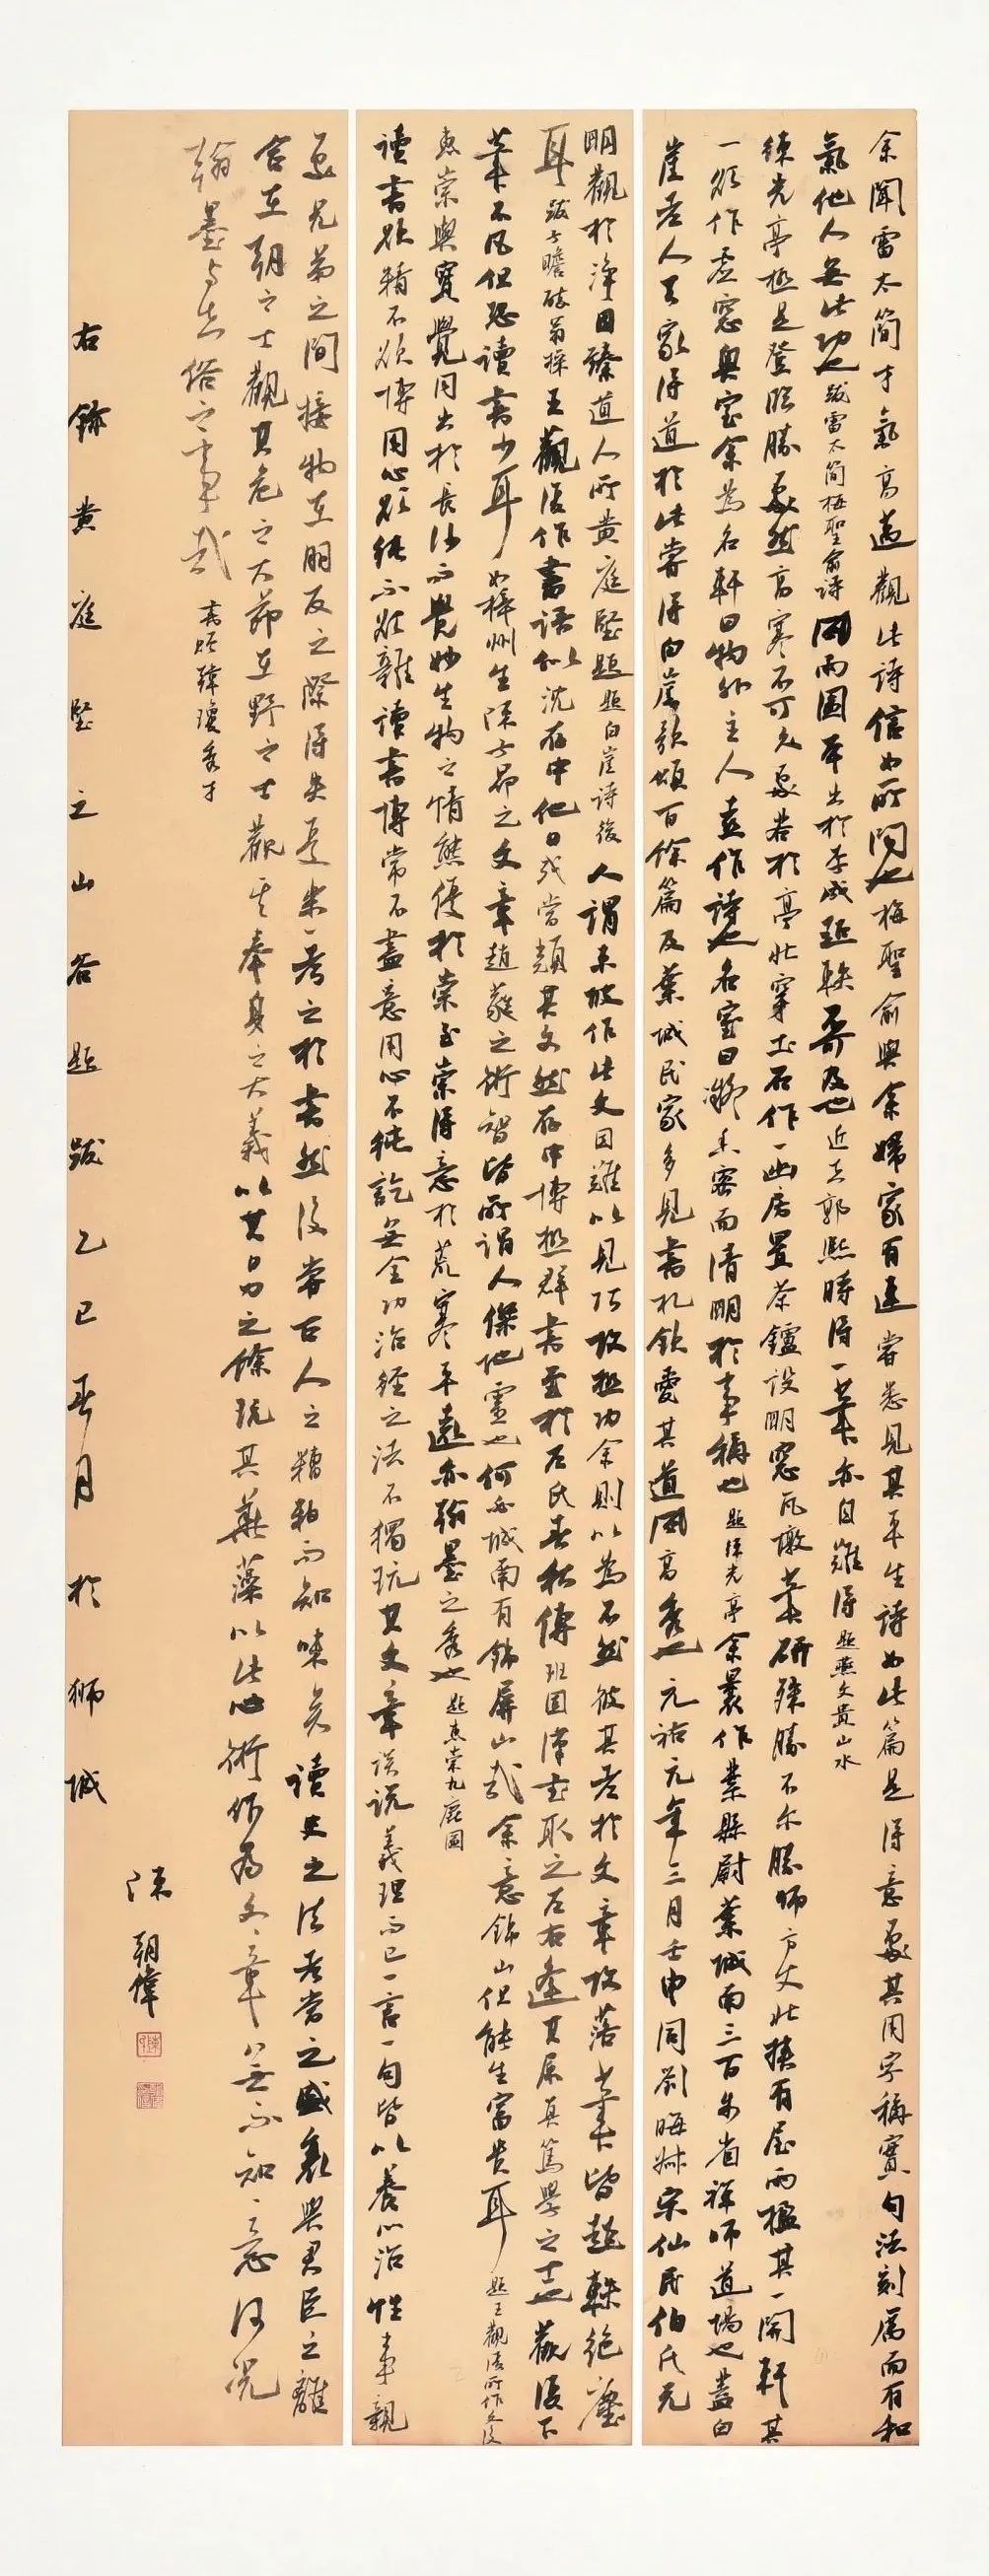 余聞雷太簡才氣高邁觀此詩信如所聞也梅聖俞與余婦家有連嘗悉見其平生詩如此篇是得意處其用字稱實句法刻厲而有和
氣他人無此功也跋雷太簡梅聖俞詩風雨圖本出於李成超軼不可及也近世郭熙時得一筆亦自難得題燕文貴山水
練光亭極是登臨勝處然高寒不可久處若於亭北穿土石作一幽房置茶鑪設明窗瓦墩筆研殊勝不尔臨師方丈北挟有屋兩楹其一開軒其
一欲作虛窗奧室余為名軒曰物外主人喜作詩也名室曰凝香密而清明於事稱也題練光亭余曩作葉縣尉葉城南三百步省禅師道場也蓋白
崖老人天家得道於此嘗得白崖歌頌百餘篇及葉城民家多見書札欽愛其道風高秀也元祐元年三月壬申同劉晦叔宋仙民伯氏元
明觀於淨因臻道人所黄庭堅題題白崖詩後人謂東坡作此文因難以見巧故極功余則以為不然彼其老於文章故落筆皆超軼絕塵
耳跋子瞻醉翁操王觀復作書語似沈存中他日或當類其文然存中博極群書至於左氏春秋傳班固漢書取之左右逢其原真篤學之士也觀復下
筆不凡但恐讀書少耳如梓州生陳子昂之文章趙蕤之術智皆所謂人傑地靈也何必城南有錦屏山哉余意錦山但能生富貴耳題王觀復所作文後
惠崇與寶覺同出於長沙而覺妙生物之情態優於崇至崇得意於荒寒平遠亦翰墨之秀也題惠崇九鹿圖
讀書欲精不欲博用心欲純不欲雜讀書博常不盡意用心不純訖無全功治經之法不獨玩其文章談說義理而已一言一句皆以養心治性事親
處兄弟之間接物在朋友之際得失憂樂一考之於書然後嘗古人之糟粕而知味矣讀史之法考當之盛衰與君臣之離
合在朝之士觀其危之大節在野之士觀其奉身之大義以其日力之餘玩其華藻以此心術作為文章無不如意何况
翰墨与世俗之事哉書贈韓瓊秀才
右錄黄庭堅之山谷題跋乙巳春月於獅城
陳朝偉